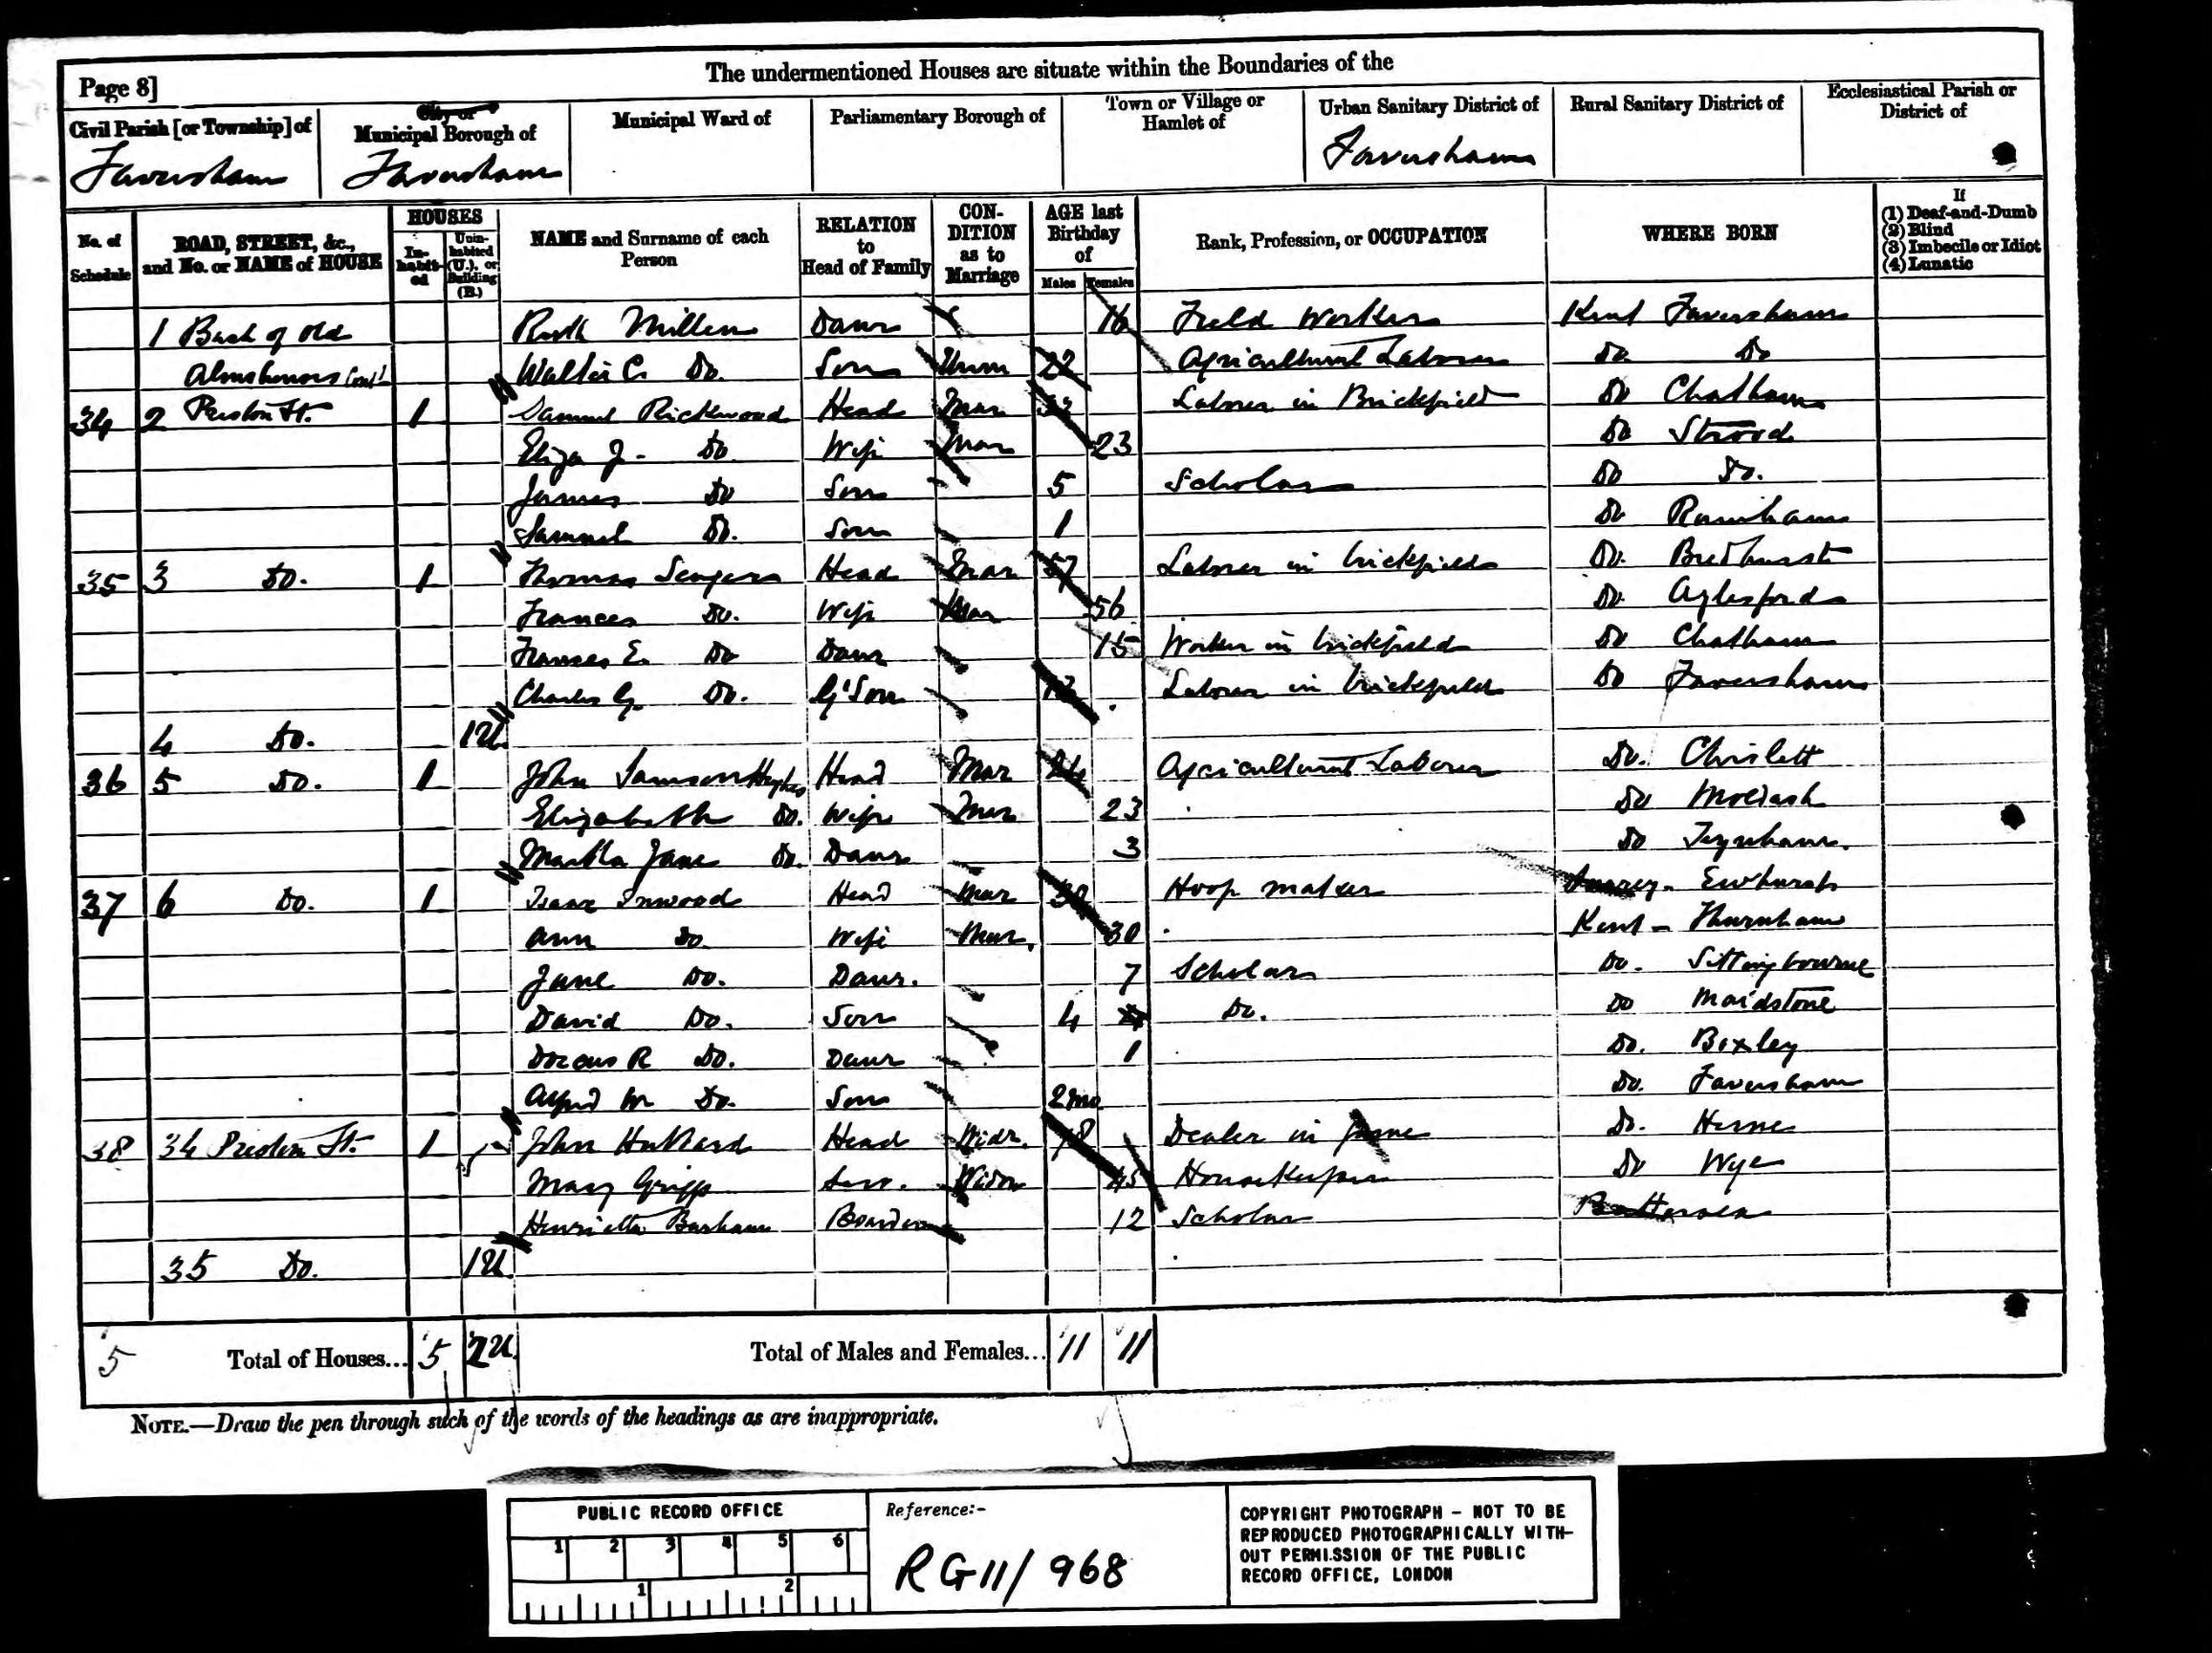 Page 8]
The undermentioned Houses are situate within the Boundaries of the
Civil Parish [or Township] of
City or
Municipal Borough of
Municipal Ward of
Parliamentary Borough of
Town or Village or
Hamlet of
Urban Sanitary District of
Rural Sanitary District of
Ecclesiastical Parish or
District of
Faversham
Faversham
Faversham
No. of
Schedule
ROAD, STREET, &c.,
and No. or NAME of HOUSE
HOUSES
In-
habit-
ed
Unin-
habited
(U.), or
Building
(B.)
NAME and Surname of each
Person
RELATION
to
Head of Family
CON-
DITION
as to
Marriage
AGE last
Birthday
of
Males
Females
Rank, Profession, or OCCUPATION
WHERE BORN
If
(1) Deaf-and-Dumb
(2) Blind
(3) Imbecile or Idiot
(4) Lunatic
1 Back of old Ruth Millen Daur 16 Field Worker Kent Faversham
Almshouses Walter C. Do. Son Unm 22 Agricultural Laborer Do Do
34 2 Preston St. 1 Samuel Rickwood Head Mar Laborer in Brickfield Do Chatham
Eliza J. Do Wife Mar 23 Do Strood
James Do Son 5 Scholar Do Do.
Samuel Do. Son 1 Do Rainham
35 3 Do. 1 Thomas Seagers Head Mar 57 Laborer in brickfield Do. Bredhurst
Frances Do. Wife Mar 56 Do. Aylesford
Frances E. Do Daur 15 Worker in brickfield Do Chatham
Charles G. Do. G'Son Laborer in brickfield Do Faversham
4 Do. 1U
36 5 Do. 1 John Samson Hughes Head Mar 24 Agricultural Laborer Do. Chislett
Elizabeth Do. Wife Mar 23 Do Moldash
Martha Jane Do. Daur 3 Do Teynham.
37 6 Do. 1 Isaac Inwood Head Mar Hoop maker Surrey - Ewhurst
Ann Do Wife Mar. 30 Kent - Thurnham
Jane Do. Daur. 7 Scholar Do. Sittingbourne
David Do. Son 4 Do. Do Maidstone
Dorcas R Do. Daur 1 Do. Boxley
Alfred W Do. Son 2mo Do. Faversham
38 34 Preston St. 1 John Hubbard Head Widr. 78 Dealer in Game Do. Herne
Mary Gripps Serv. Widow 45 Housekeeper Do Wye
Henrietta Barham Boarder 12 Scholar Battersea
35 Do. 1U
5 Total of Houses... 5 2U. Total of Males and Females... 11 11
NOTE.—Draw the pen through such of the words of the headings as are inappropriate.
PUBLIC RECORD OFFICE
1 2 3 4 5 6
1 2
Reference:-
RG11/968
COPYRIGHT PHOTOGRAPH - NOT TO BE
REPRODUCED PHOTOGRAPHICALLY WITH-
OUT PERMISSION OF THE PUBLIC
RECORD OFFICE, LONDON